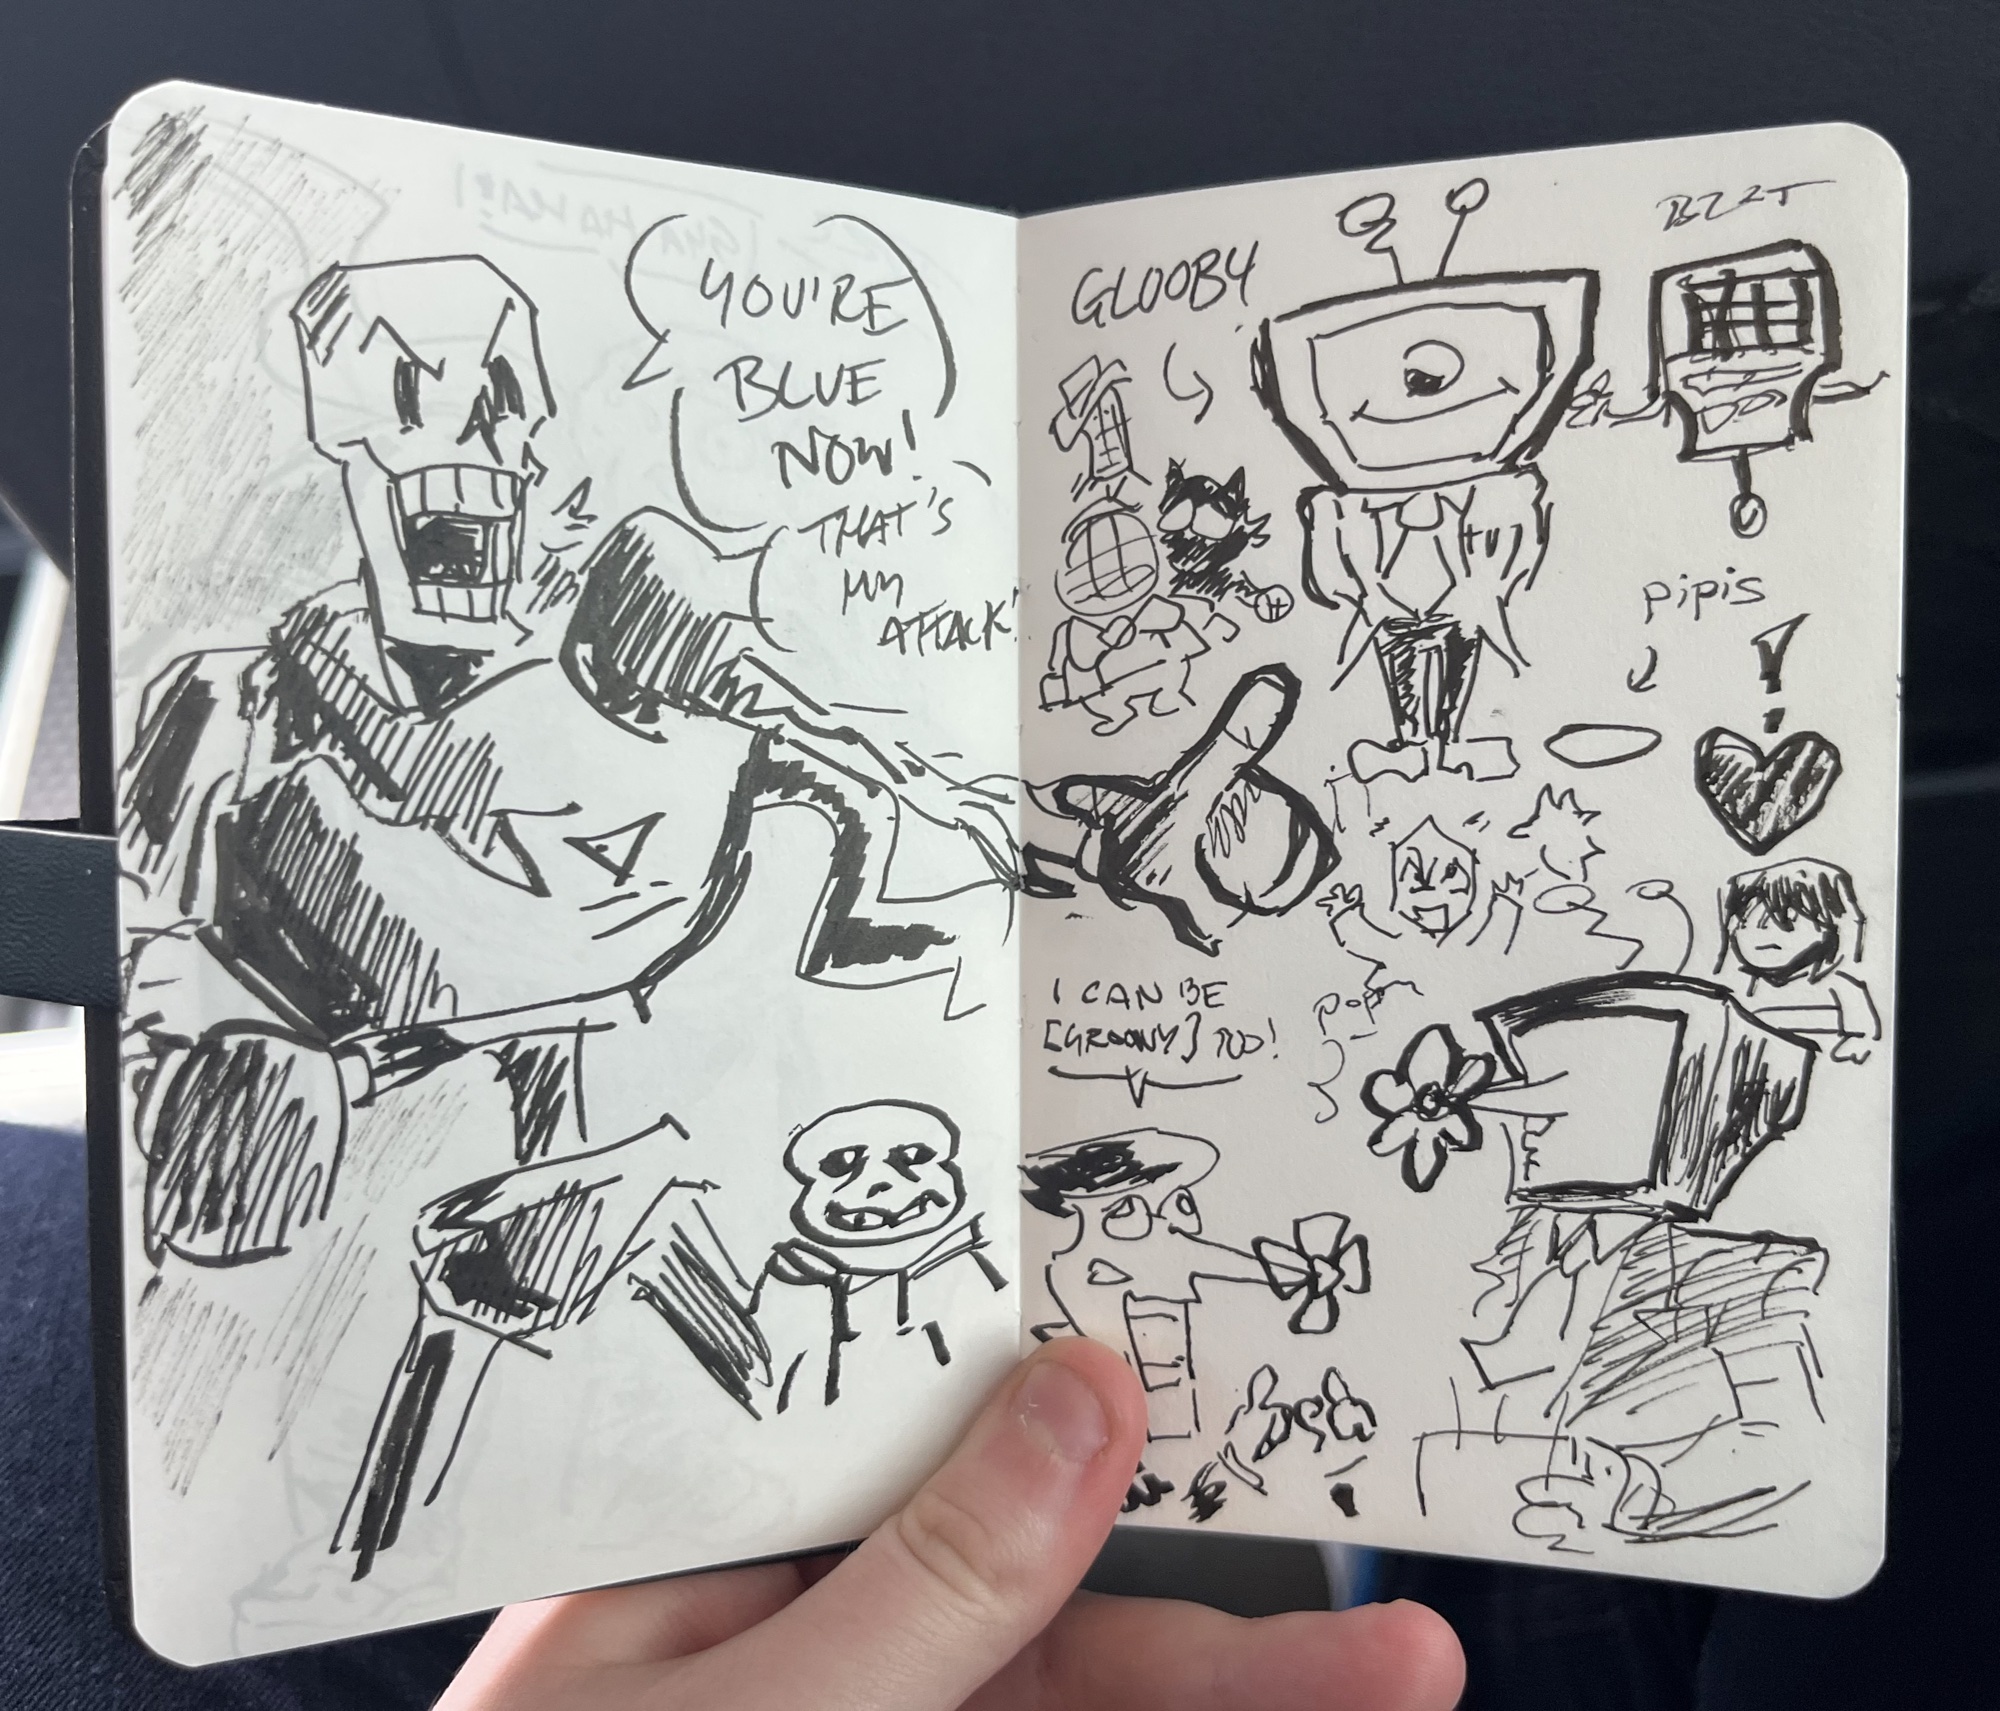 YOU'RE
BLUE
NOW!
THAT'S
MY
ATTACK!
GLOOBY
BZZT
pipis
I CAN BE
[GROOVY] TOO!
POP